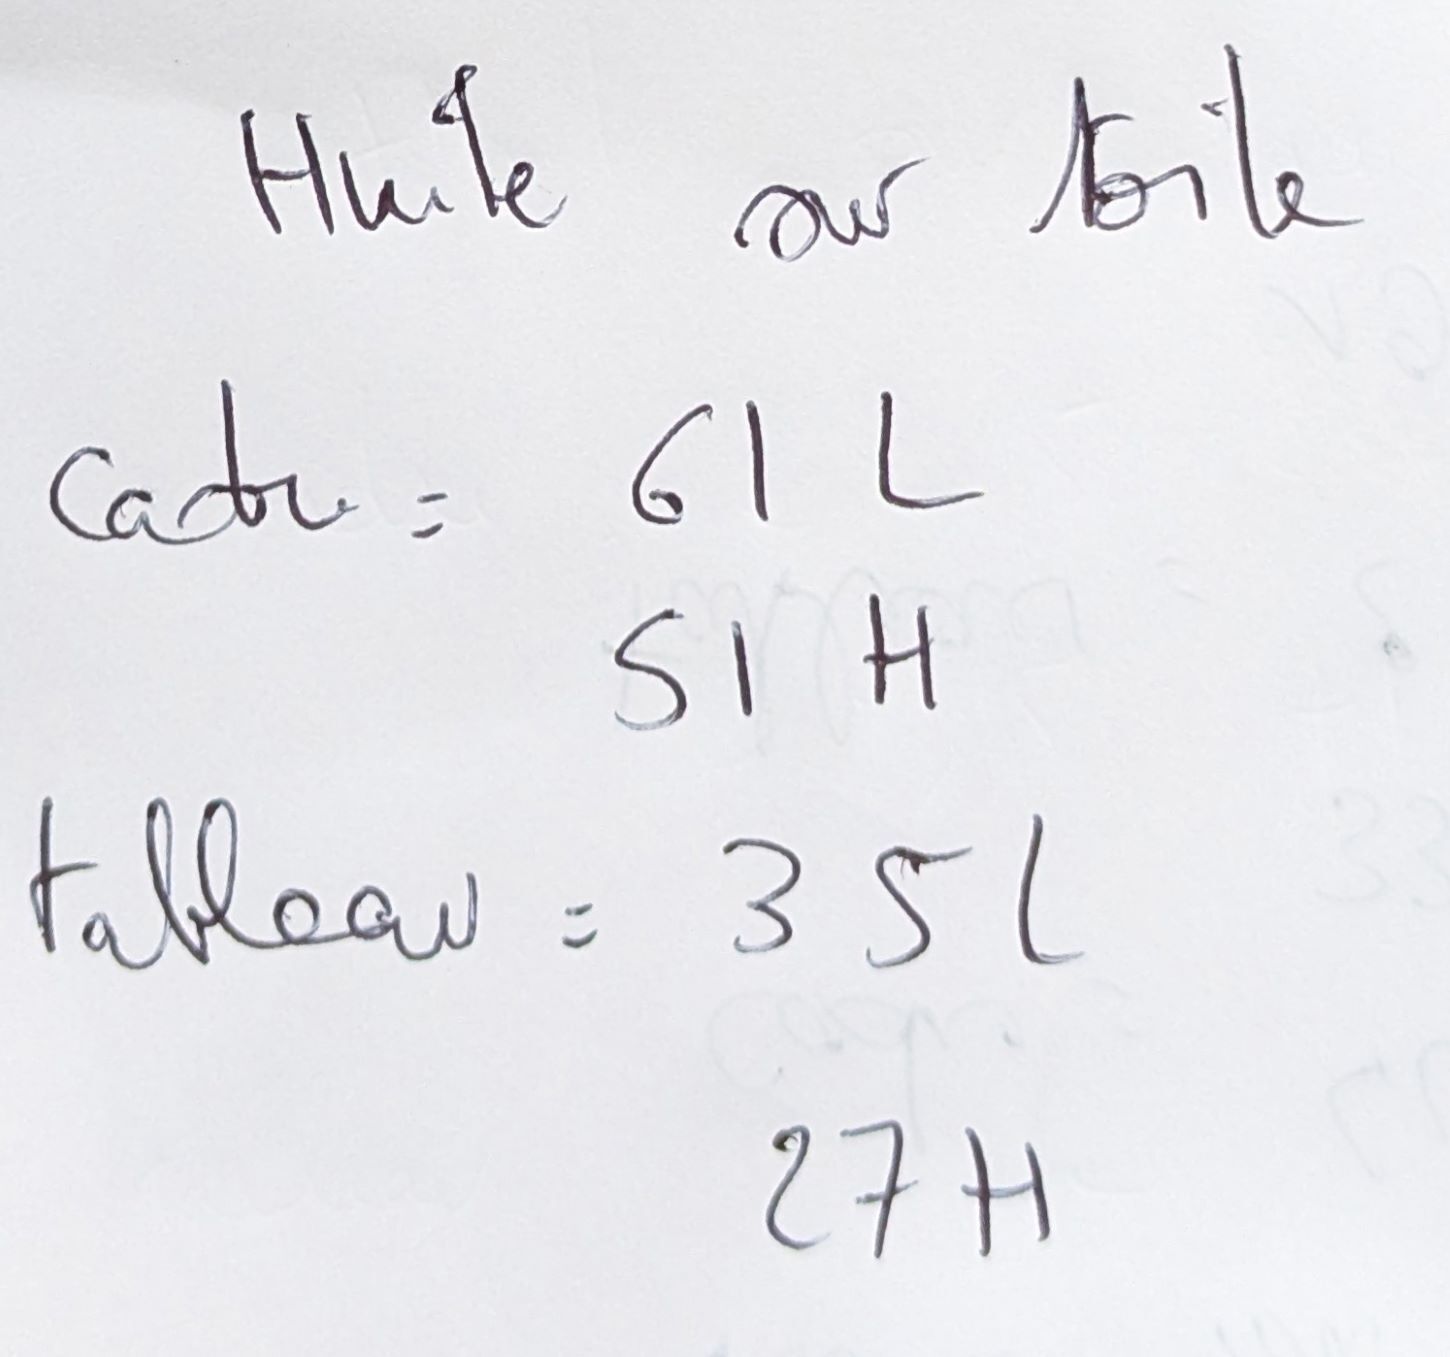 Huile sur toile
Cadre = 61 L
51 H
tableau = 35 L
27 H